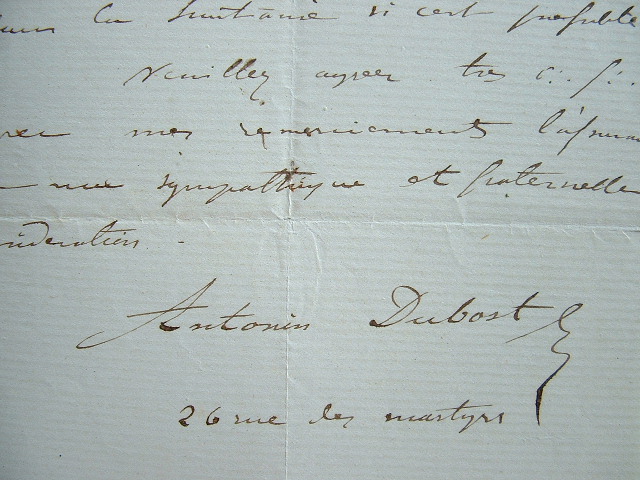 la huitaine si c'est possible
Veuillez agréer très c∴ f∴
avec mes remerciements l'assuran
ma sympathique et fraternelle
nsidération.
Antonin Dubost
26 rue des martyrs